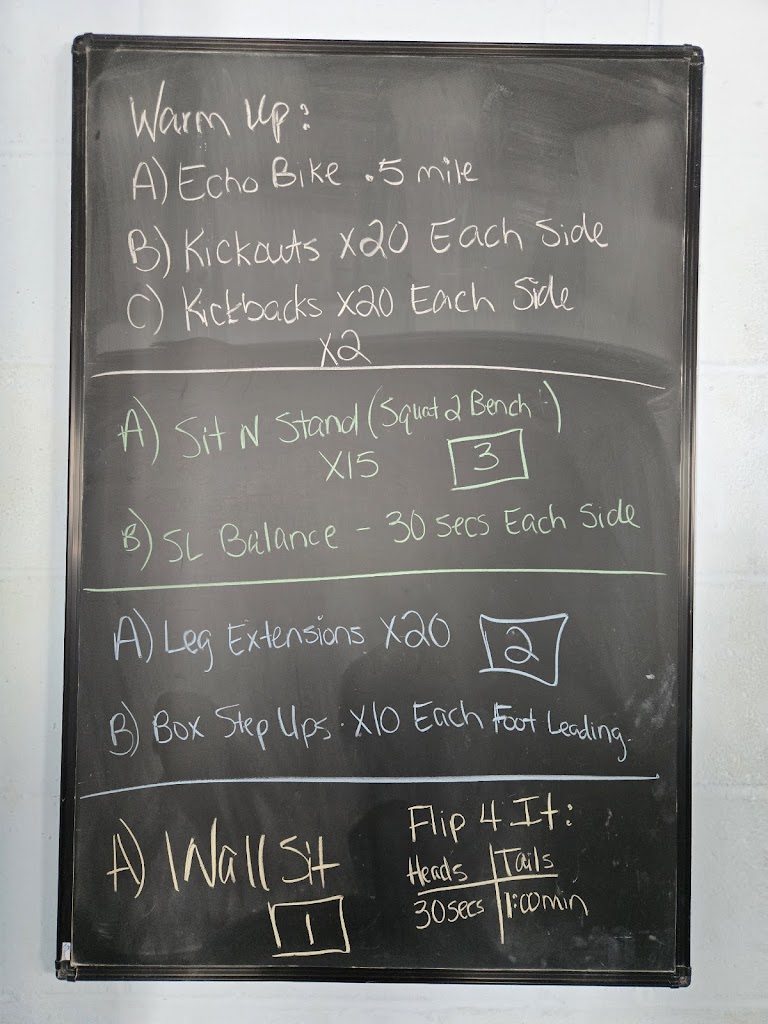 Warm Up:
A) Echo Bike .5 mile
B) Kickouts X20 Each Side
C) Kickbacks X20 Each Side
X2
A) Sit N Stand (Squat 2 Bench)
X15 3
B) SL Balance - 30 secs Each Side
A) Leg Extensions X20 2
B) Box Step Ups. X10 Each Foot Leading.
A) Wall Sit
1
Flip 4 It:
Heads Tails
30secs 1:00min